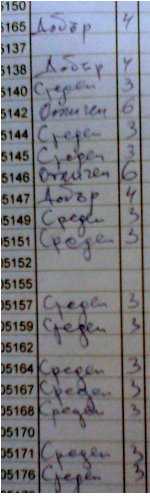 5150
5165 Добър 4
5137
5138 Добър 4
5140 Среден 3
5142 Отличен 6
5144 Среден 3
5145 Среден 3
5146 Отличен 6
5147 Добър 4
5149 Среден 3
05151 Среден 3
05152
05155
05157 Среден 3
05159 Среден 3
05162
05164 Среден 3
05167 Среден 3
05168 Среден 3
05170
05171 Среден 3
05176 Среден 3